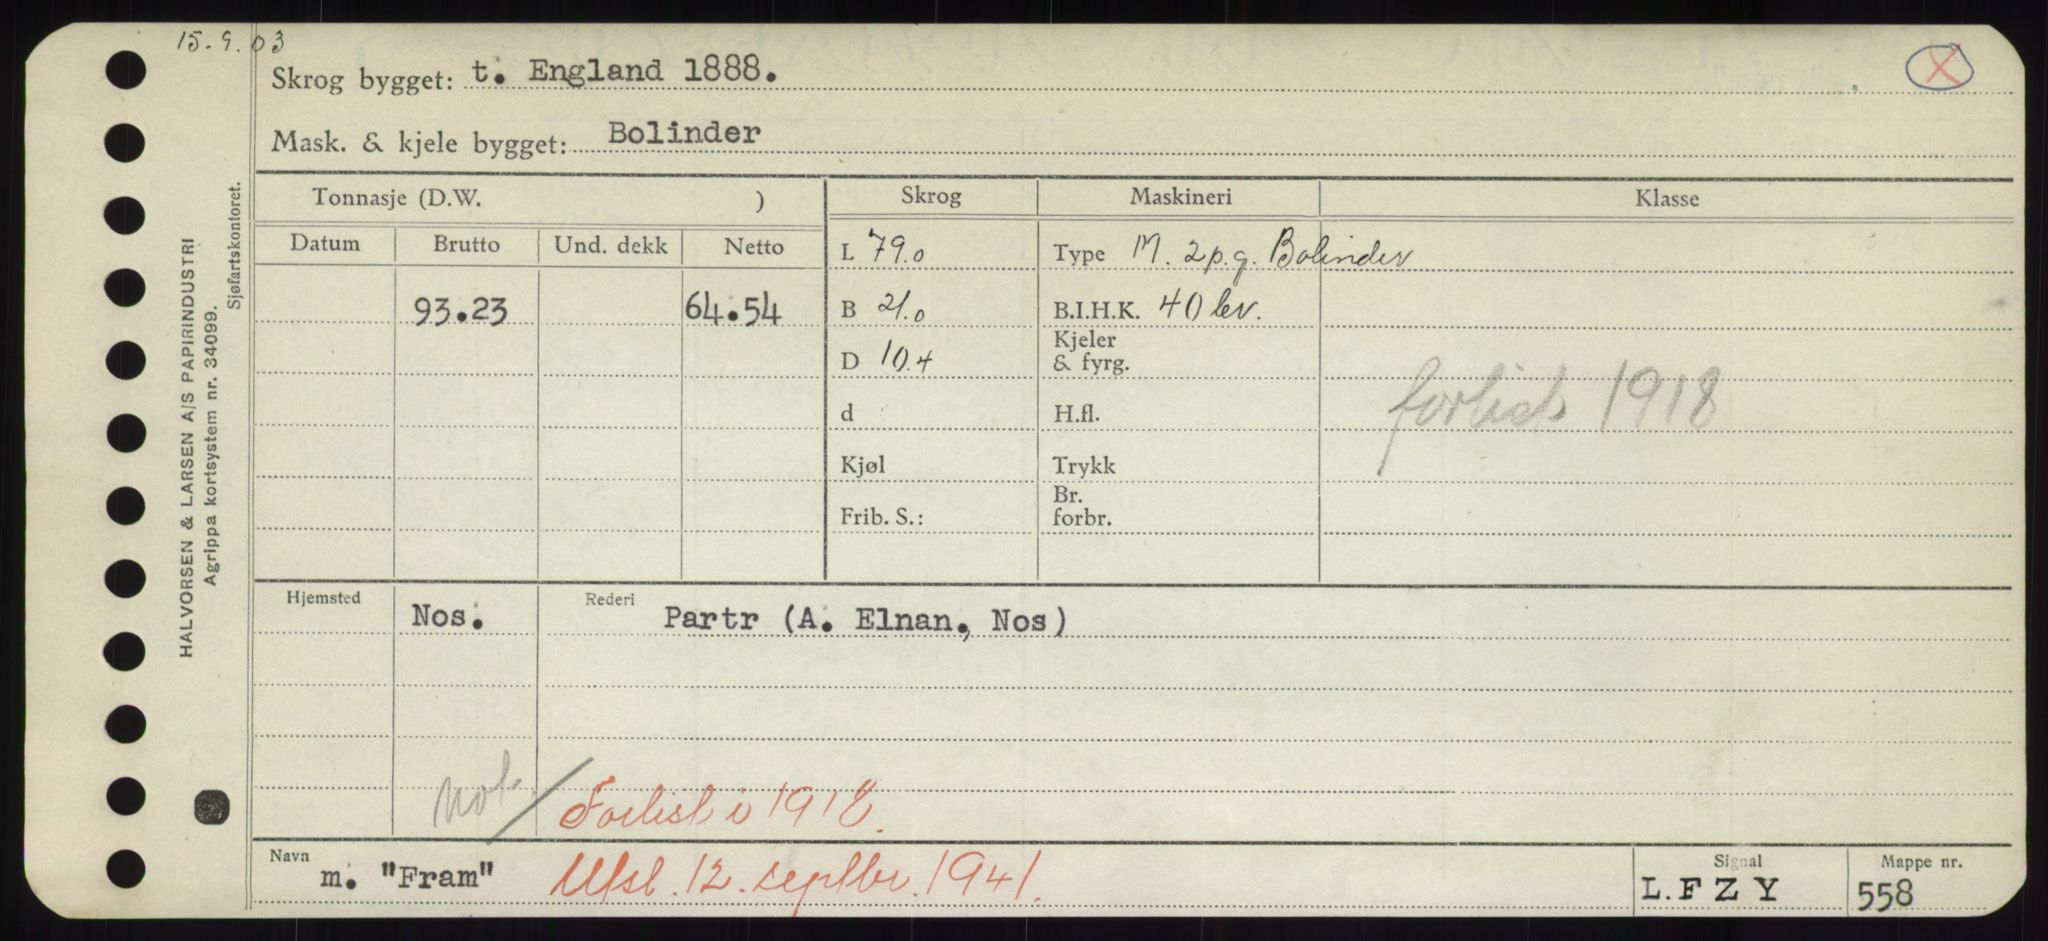 15.9.03
Skrog bygget: t. England 1888.
Mask. & kjele bygget: Bolinder
Tonnasje (D.W. )
Skrog
Maskineri
Klasse
Datum
Brutto
Und. dekk
Netto
L 79.0
Type M. 2 p.g. Bolinder
93.23
64.54
B 21.0
B.I.H.K. 40 bv.
D 10.4
Kjeler
& fyrg.
d
H.fl.
forlist 1918
Kjøl
Trykk
Frib. S.:
Br.
forbr.
Hjemsted
Nos.
Rederi
Partr (A. Elnan, Nos)
not.
Forlist i 1918.
Navn
m. "Fram"
Utsl. 12. septbr. 1941.
Signal
L.F Z Y
Mappe nr.
558
HALVORSEN & LARSEN A/S PAPIRINDUSTRI
Agrippa kortsystem nr. 34099.
Sjøfartskontoret.